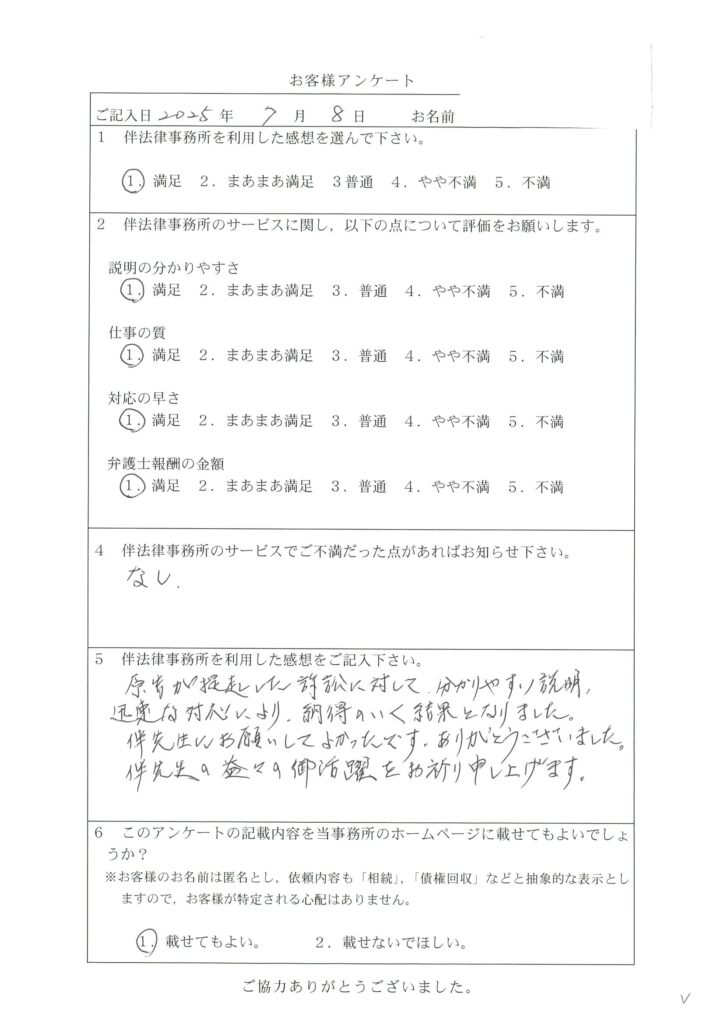 お客様アンケート
ご記入日 2025 年 7 月 8 日 お名前
1 伴法律事務所を利用した感想を選んで下さい。
1.満足 2.まあまあ満足 3普通 4.やや不満 5.不満
2 伴法律事務所のサービスに関し,以下の点について評価をお願いします。
説明の分かりやすさ
1.満足 2.まあまあ満足 3.普通 4.やや不満 5.不満
仕事の質
1.満足 2.まあまあ満足 3.普通 4.やや不満 5.不満
対応の早さ
1.満足 2.まあまあ満足 3.普通 4.やや不満 5.不満
弁護士報酬の金額
1.満足 2.まあまあ満足 3.普通 4.やや不満 5.不満
4 伴法律事務所のサービスでご不満だった点があればお知らせ下さい。
なし.
5 伴法律事務所を利用した感想をご記入下さい。
原告が提起した訴訟に対して、分かりやすい説明、
迅速な対応により、納得のいく結果となりました。
伴先生にお願いしてよかったです。ありがとうございました。
伴先生の益々の御活躍をお祈り申し上げます。
6 このアンケートの記載内容を当事務所のホームページに載せてもよいでしょ
うか?
※お客様のお名前は匿名とし,依頼内容も「相続」,「債権回収」などと抽象的な表示とし
ますので,お客様が特定される心配はありません。
1.載せてもよい。 2.載せないでほしい。
ご協力ありがとうございました。